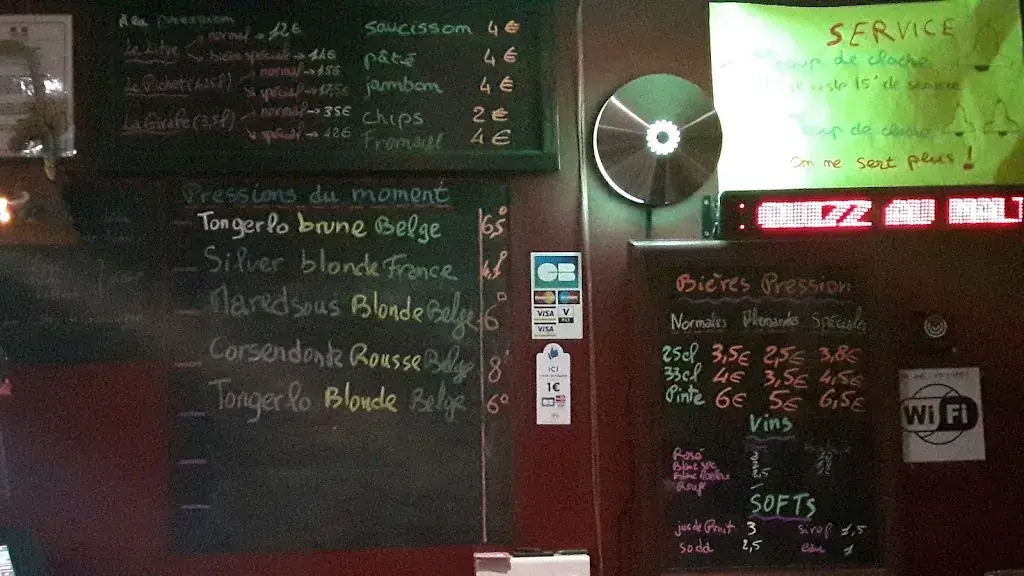 A la pression
Le Litre normal → 12€ saucissom 4€
bière spéciale → 14€ pâté 4€
Le Pichet (1,5l) normal → 15€ jambom 4€
spécial → 17,5€
La Girafe (3,5l) normal → 35€ chips 2€
spécial → 42€ Fromage 4€
Pressions du moment
Tongerlo brune Belge 6,5°
Silver blonde France
Maredsous Blonde Belge 6°
Corsendonk Rousse Belge 8°
Tongerlo Blonde Belge 6°
CB
VISA V
VISA
ICI
1€
SERVICE
coup de cloche
reste 15' de service
coup de cloche
On ne sert plus !
ZZ AU MALT
Bières Pression
Normales Allemandes Spéciales
25cl 3,5€ 2,5€ 3,8€
33cl 4€ 3,5€ 4,5€
Pinte 6€ 5€ 6,5€
Vins
Rosé
Blanc sec
Rouge
SOFTs
jus de fruit 3 sirop 1,5
soda 2,5 eau 1
Wi Fi